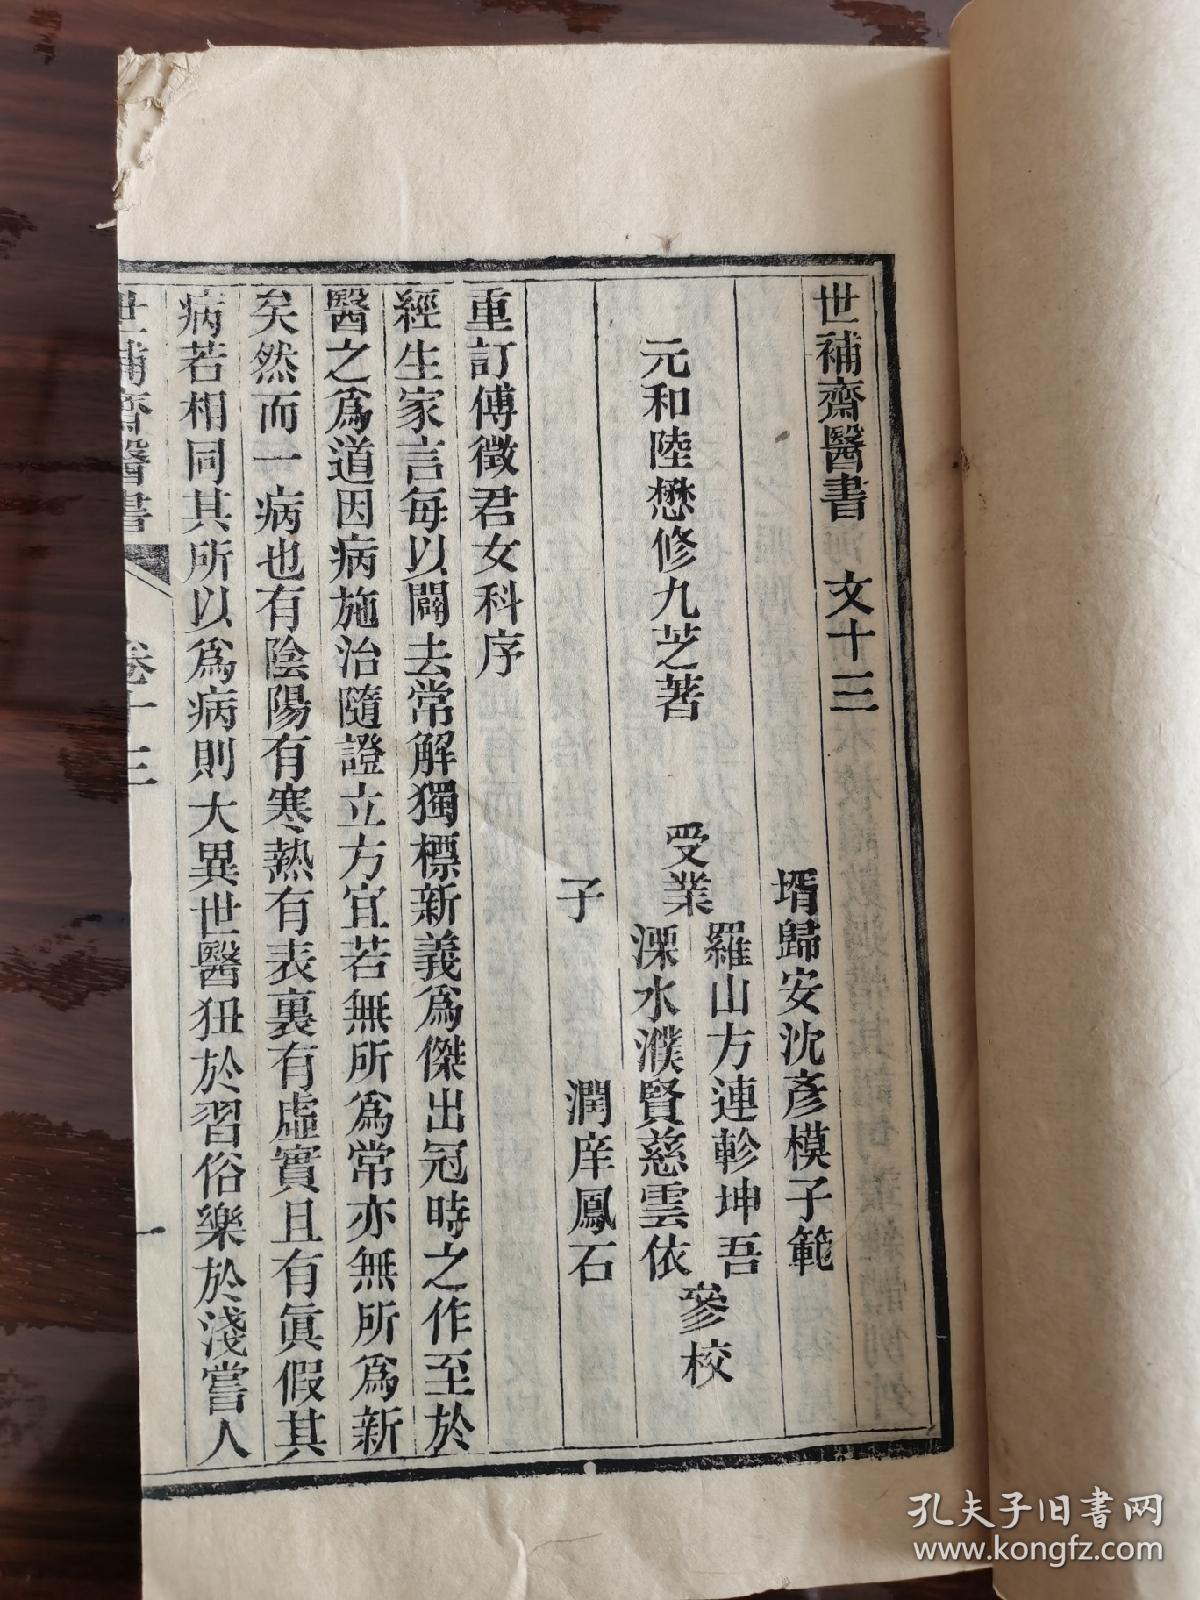 世補齋醫書　文十三
壻歸安沈彥模子範
元和陸懋修九芝著　受業　羅山方連軫坤吾　參校
溧水濮賢慈雲依
子　潤庠鳳石
重訂傅徵君女科序
經生家言每以闢去常解獨標新義爲傑出冠時之作至於
醫之爲道因病施治隨證立方宜若無所爲常亦無所爲新
矣然而一病也有陰陽有寒熱有表裏有虛實且有眞假其
病若相同其所以爲病則大異世醫狃於習俗樂於淺嘗人
世補齋醫書　卷十三　一
孔夫子旧书网
www.kongfz.com